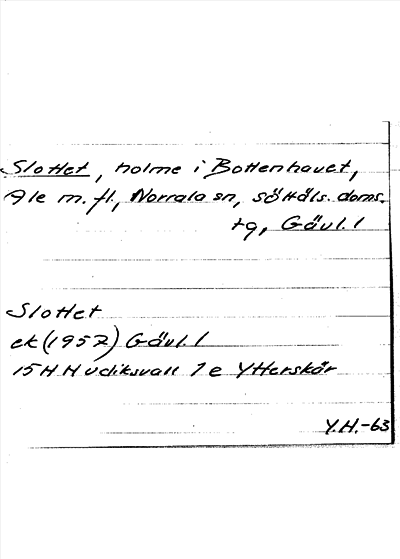 Slottet, holme i Bottenhavet,
Ale m.fl., Norrala sn, sö Häls. doms.
tg, Gävl. l
Slottet
ek (1957) Gävl. l
15H Hudiksvall 7e Ytterskär
Y.H.-63